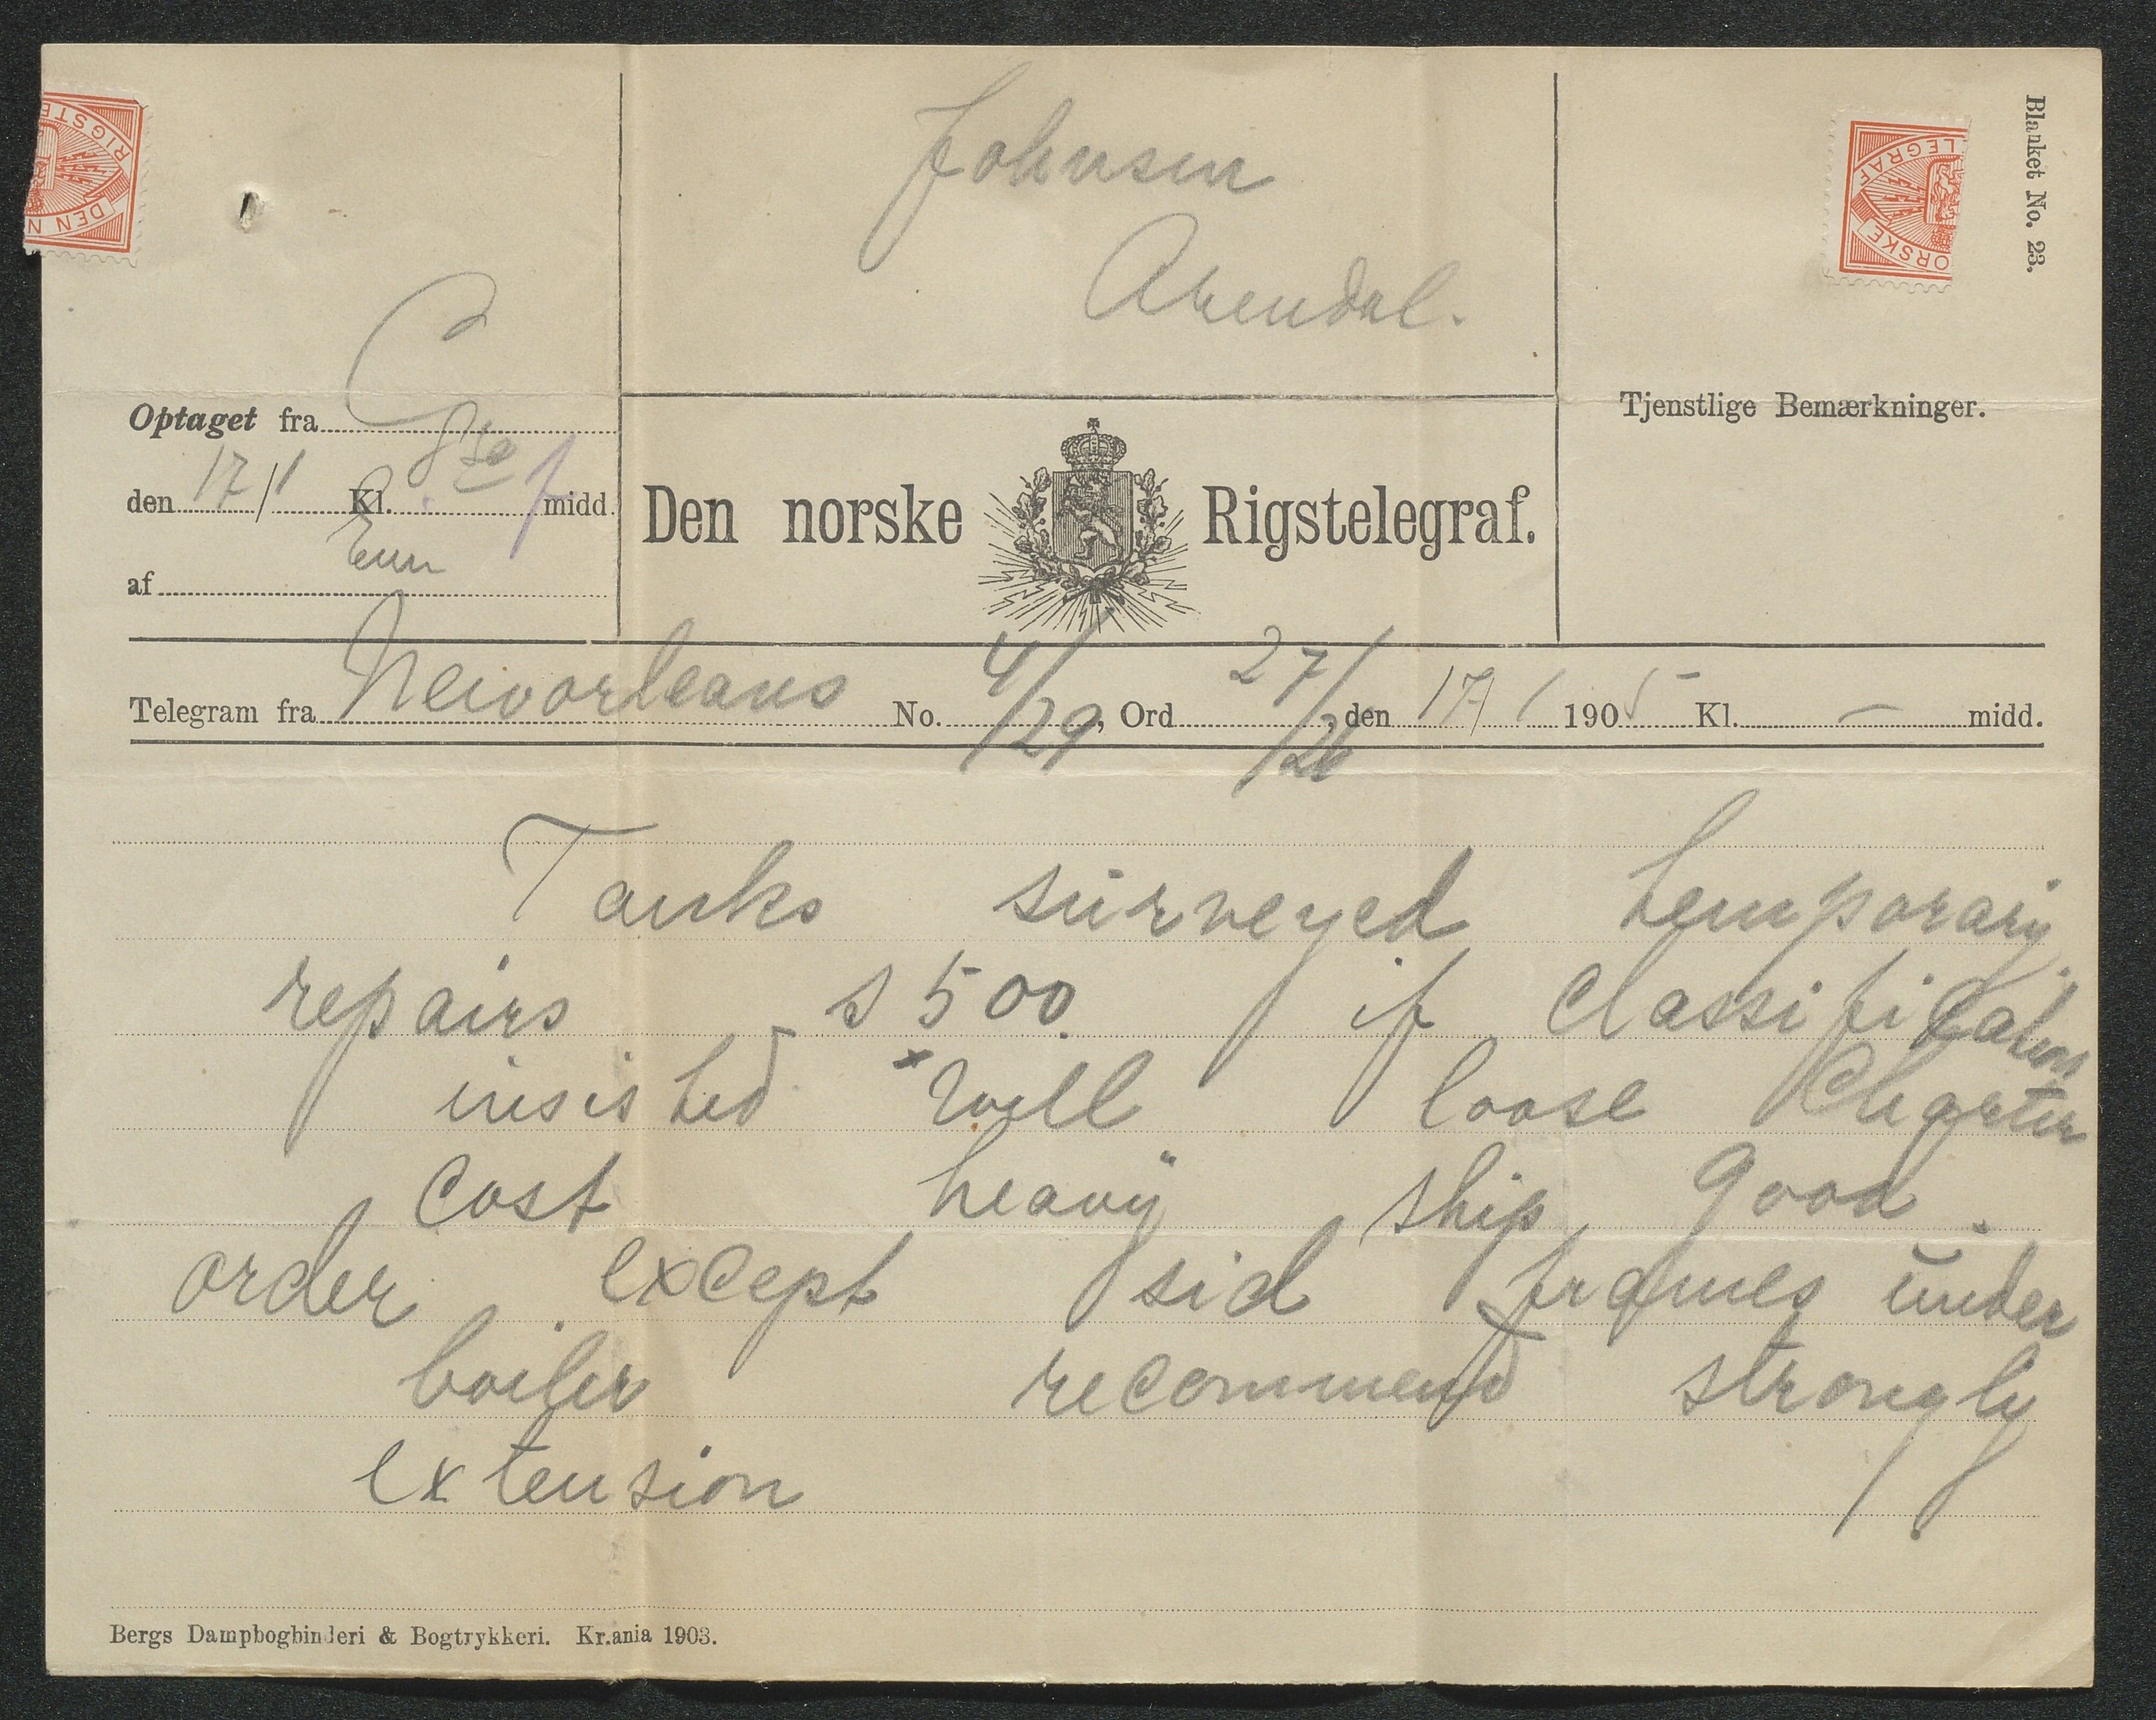 Blanket No. 23.
Johnsen
Arendal.
RIGSTE
DEN N
LEGRAF
ORSKE
Optaget fra C
den 17/1 Kl. 8 50 f midd.
af
Den norske Rigstelegraf.
Tjenstlige Bemærkninger.
Telegram fra Neworleans No. 4/29, Ord 27/26, den 17/1 1905 Kl. — midd.
Tanks surveyed temporary
repairs $ 500 if classification
insisted will loose Charter
cost heavy ship good
order except sid frames under
boiler recommend strongly
extension
Bergs Dampbogbinderi & Bogtrykkeri. Kr.ania 1903.